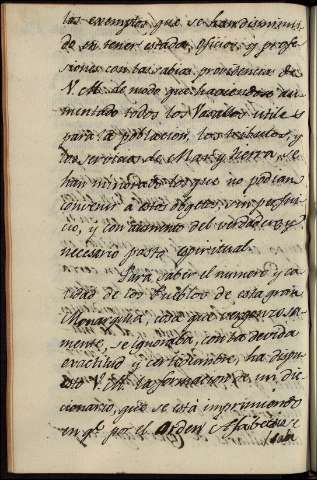 las exemptos que se han disminui-
do en tener estados, oficios, y profe-
siones con las sabias providencias de
V. M. de modo que haviendose au-
mentado todos los Vasallos utiles
para la poblacion, los tributos, y
los servicios de Mar, y tierra, se
han minorado los que no podian
convenir à estos objetos, sin perjui-
cio, y con aumento del verdadero, y
necesario pasto espiritual.
Para saber el numero y ca-
lidad de los Pueblos de esta gran
Monarquia, cosa que vergonzosa-
mente, se ignoraba, con la devida
exactitud y certidumbre, ha dispu-
esto V. M. la formacion de un dic-
cionario, que se está imprimiendo
en qe. por el Orden Alfabetico